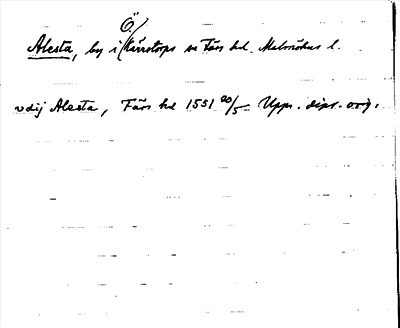 Ö.
Alesta, by i Kärrstorps sn Färs hd. Malmöhus l.
vdij Alesta, Färs hd 1551 20/5 Upps. dipl. orig.